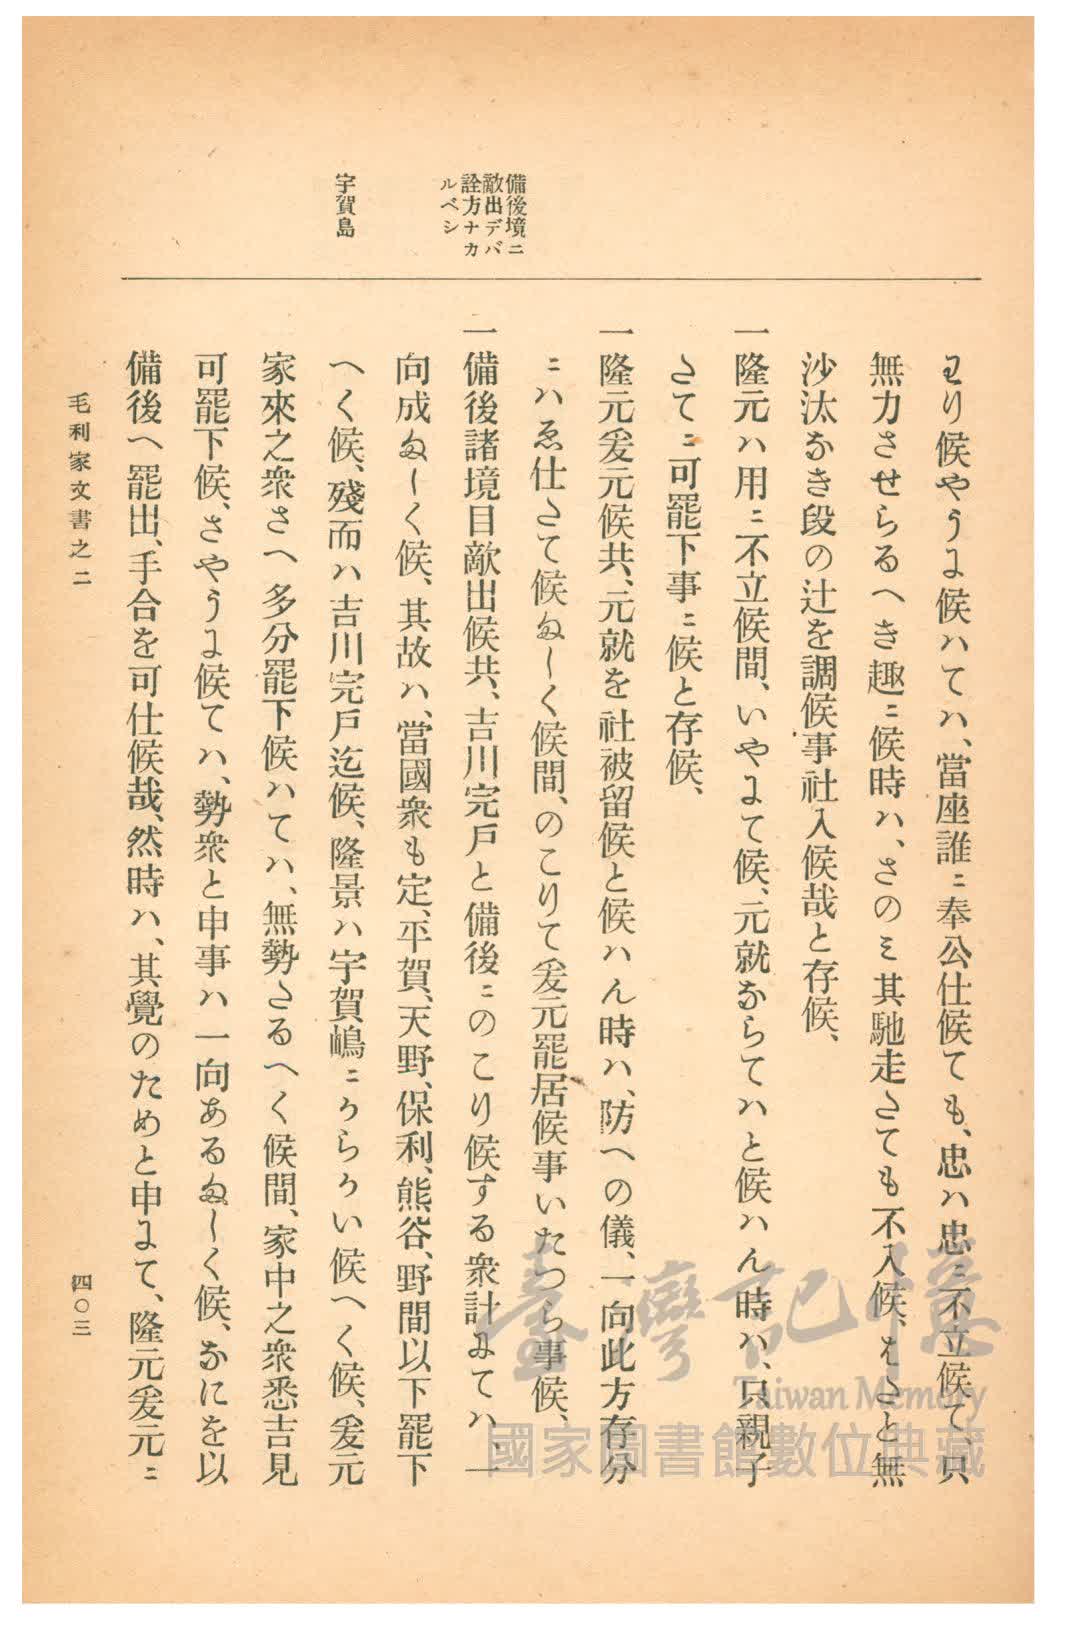 備後境ニ
敵出デバ
詮方ナカ
ルベシ
宇賀島
わり候やうよ候ハてハ、當座誰ニ奉公仕候ても、忠ハ忠ニ不立候て、只
無力させらるへき趣ニ候時ハ、さのミ其馳走さても不入候、はさと無
沙汰なき段の辻を調候事社入候哉と存候、
一隆元ハ用ニ不立候間、いやよて候、元就ならてハと候ハん時ハ、只親子
さてニ可罷下事ニ候と存候、
一隆元爰元候共、元就を社被留候と候ハん時ハ、防への儀、一向此方存分
ニハゑ仕さて候ぬしく候間、のこりて爰元罷居候事いたつら事候、
一備後諸境目敵出候共、吉川宍戸と備後ニのこり候する衆計みてハ、一
向成ぬしく候、其故ハ、當國衆も定、平賀、天野、保利、熊谷、野間以下罷下
へく候、殘而ハ吉川宍戸迄候、隆景ハ宇賀嶋ニゥらゥい候へく候、爰元
家來之衆さへ多分罷下候ハてハ、無勢さるへく候間、家中之衆悉吉見
可罷下候、さやうよ候てハ、勢衆と申事ハ一向あるぬしく候、なにを以
備後へ罷出、手合を可仕候哉、然時ハ、其覺のためと申よて、隆元爰元ニ
毛利家文書之二
四〇三
臺灣記憶
Taiwan Memory
國家圖書館數位典藏